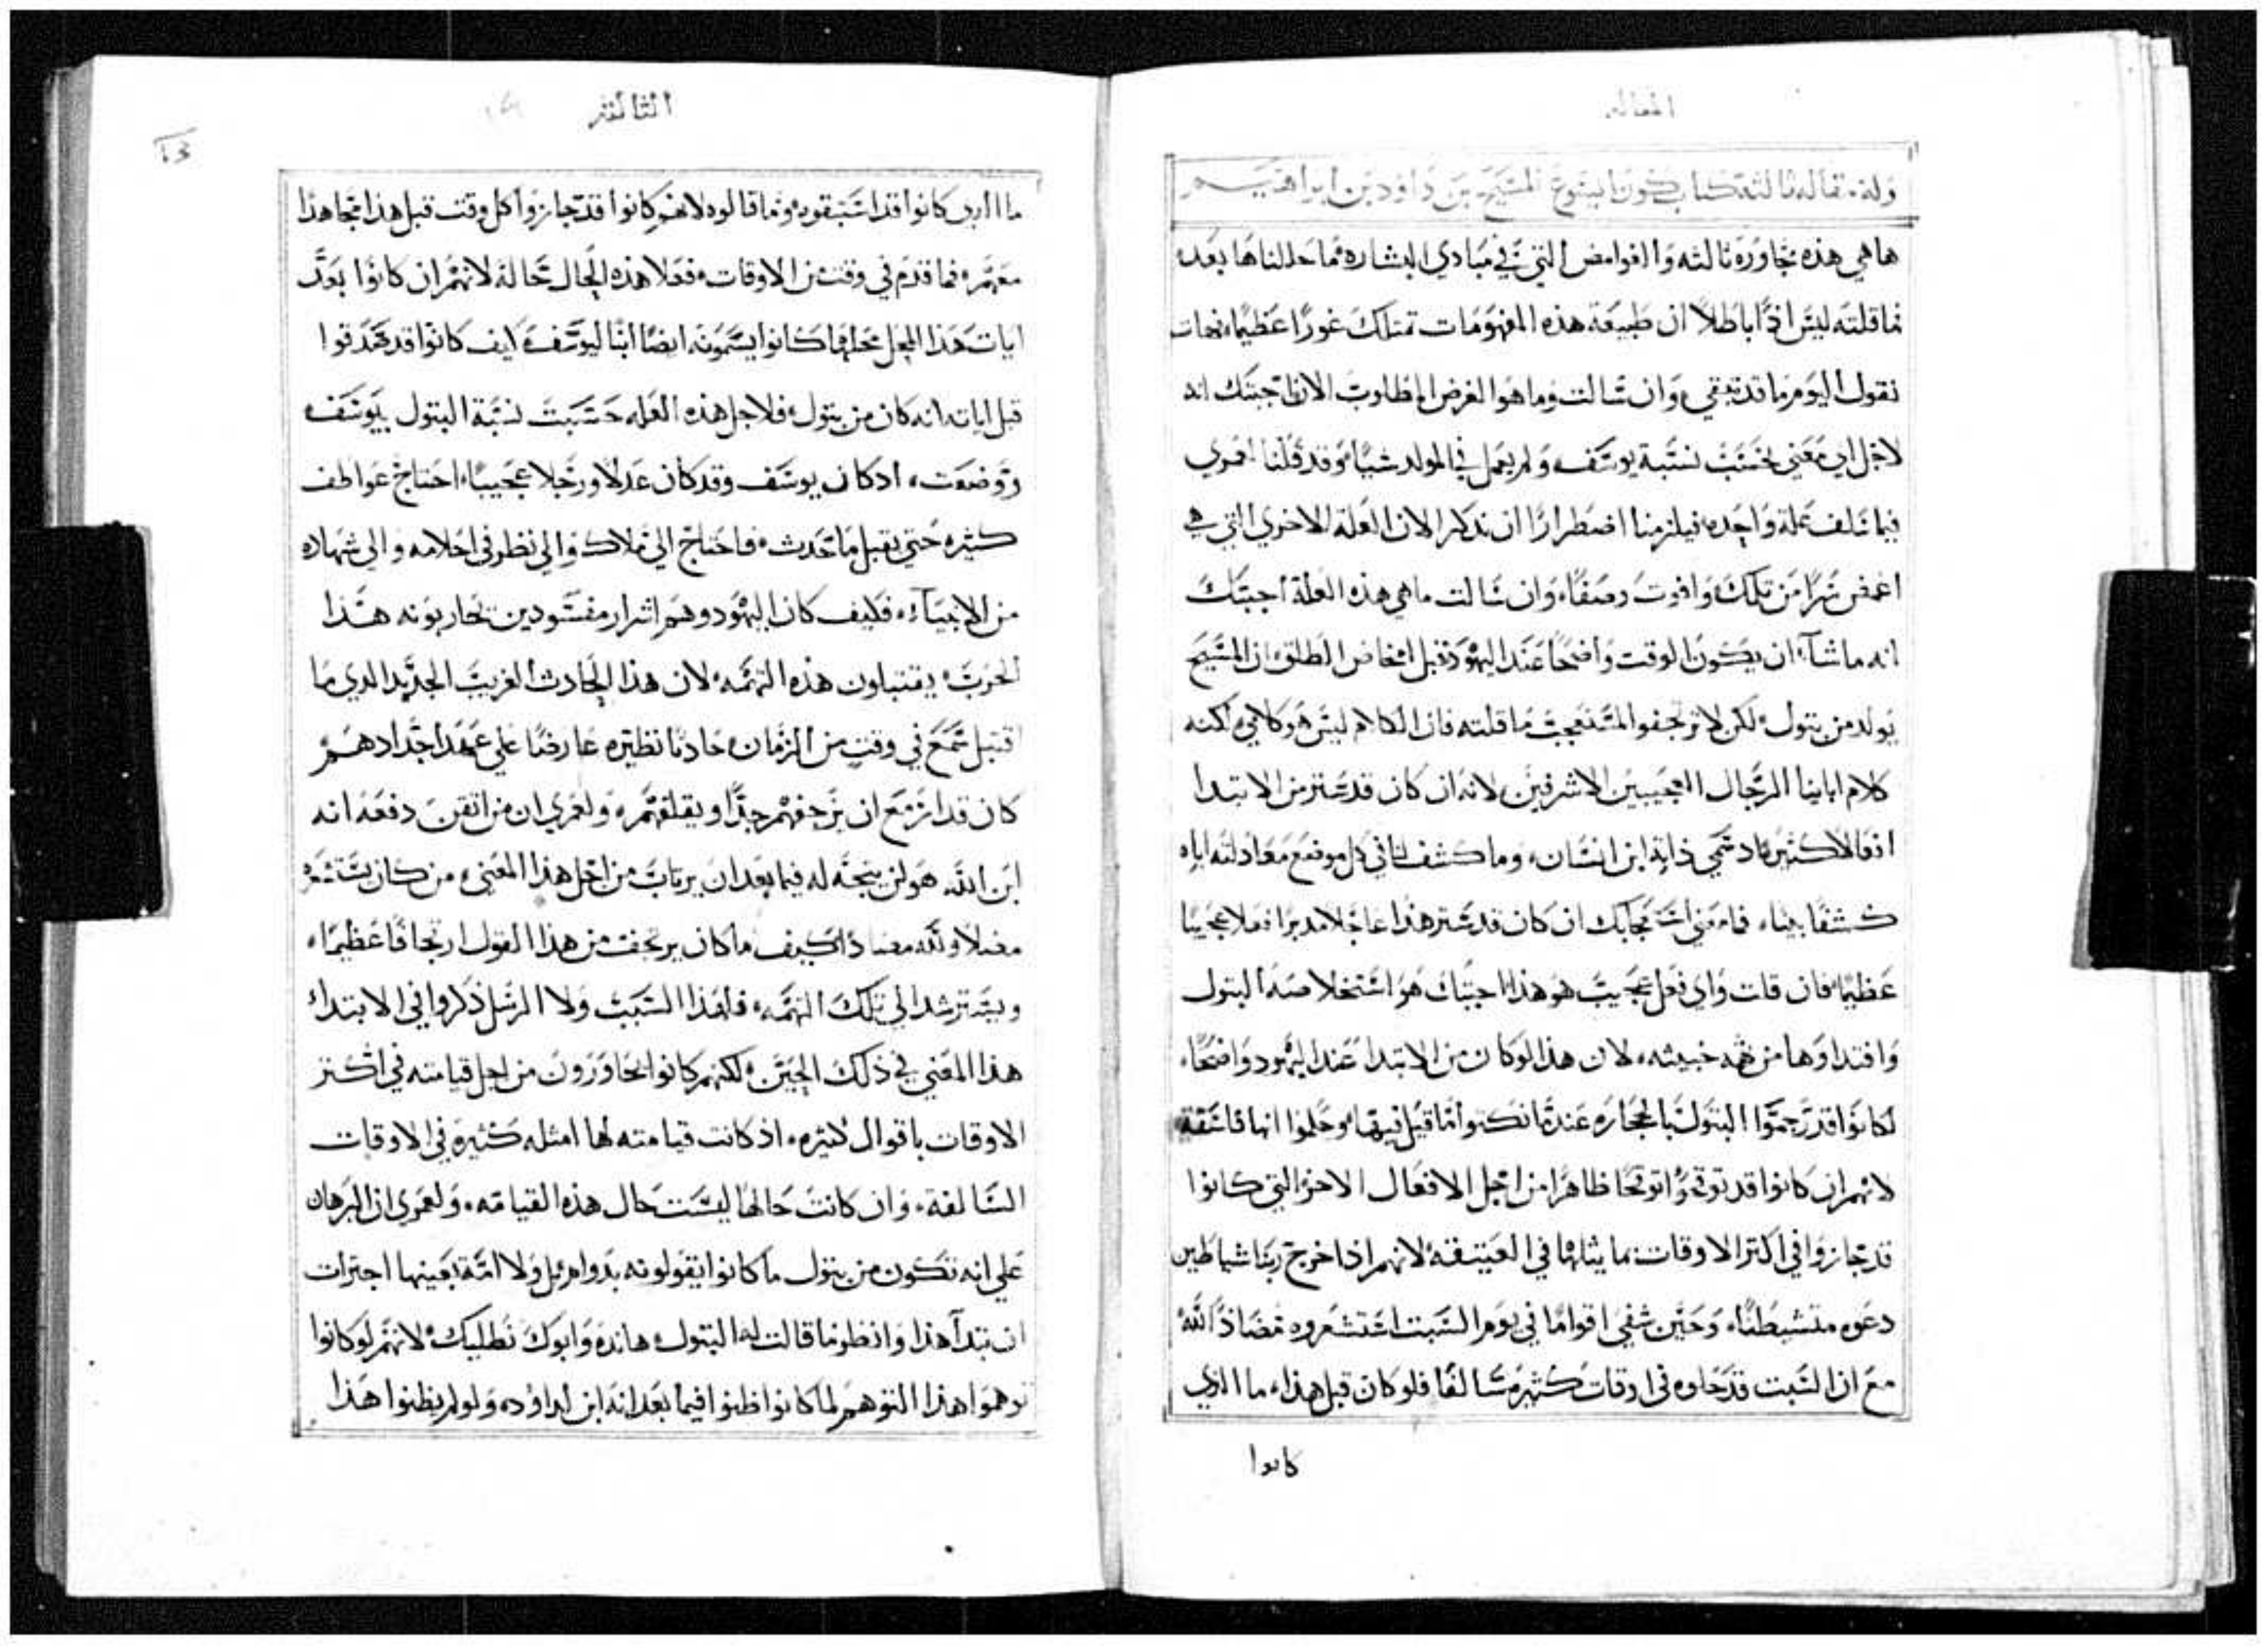 المقاله
وله مقاله ثالثه كتاب كون ايسوع المسيح بن داود بن ابراهيم
ها هي هذه مجاوره ثالثه والغوامض التي في مبادي البشاره ما حللناها بعد
فما قلته ليس اذا باطلا ان طبيعة هذه المفهومات تمتلك غورا عظيما فهات
نقول اليوم ما قد تبقي وان سالت وما هو الغرض المطلوب الان اجبتك انه
لاجل اي معني تحسب نسبة يوسف ولم يعمل في المولد شيا وقد قلنا اقوي
فيما سلف علة واحده فيلزمنا اضطرارا ان نذكر الان العله الاخري التي هي
اغمض سرا من تلك وافوت وصفا وان سالت ما هي هذه العلة اجبتك
انه ما شاء ان يكون الوقت واضحا عند اليهود قبل امخاض الطلق ان المسيح
يولد من بتول لكن لا ترتجفوا لمستعجب ما قلته فان الكلام ليس هو كلامي لكنه
كلام ابابنا الرجال العجيبين الاشرفين لانه ان كان قد ستر من الابتدا
افعالا كثيره اذ سمي ذاته ابن انسان وما كشف لنا في كل موضع معادلته اباه
كشفا بينا فما معني استعجابك ان كان قد ستر هذا عاجلا مدبرا فعلا عجيبا
عظيما فان قلت واي فعل عجيب هو هذا اجبتك هو استخلاصه البتول
وافتداوها من تهمه خبيثه لان هذا لو كان من الابتدا عند اليهود واضحا
لكانوا قد رجموا البتول بالحجاره عندما نكتوا ما قيل فيها وحكموا انها فاسقة
لانهم ان كانوا قد توقحوا توقحا ظاهرا من اجل الافعال الاخر التي كانوا
قد حازوا في اكثر الاوقات مما يثلها في العتيقه لانهم اذا اخرج ربنا شياطين
دعوه متشيطنا وحين شفي اقواما في يوم السبت استشعروه مضاددا لله
مع ان السبت قد حلوه في اوقات كثيره سالفا فلو كان قبل هذا ما الذي
كانوا
الثالثه
ما الذي كانوا قد استبقوه وما قالوه لانهم كانوا قد حازوا كل وقت قبل هذا مجاهدا
معهم فما قدم في وقت من الاوقات فعلا هذه الحال حاله لانهم ان كانوا بعد
ايات هذا المحل محلها كانوا يسمونه ايضا ابنا ليوسف كيف كانوا قد صدقوا
قبل اياته انه كان من بتول فلاجل هذه العله حسبت نسبة البتول بيوسف
ووضعت اذ كان يوسف وقد كان عدلا ورجلا عجيبا احتاج عواطف
كثيره حتي يقبل ما حدث فاحتاج الي ملاك والي نظر في احلامه والي شهاده
من الانبياء فكيف كان اليهود وهم اشرار مفسودين يحاربونه هذا
الحرب يقتبلون هذه التهمه لان هذا الحادث الغريب الجديد الذي ما
اقتبل سمع في وقت من الزمان حادثا نظيره عارضا علي عهد اجدادهم
كان قد ازمع ان يزجفهم جدا ويقلقهم ولعمري ان من اتقن دفعه انه
ابن الله هو لن يتجه له فيما بعد ان يرتاب من اجل هذا المعني من كان يستشعره
مضلا ولله مضاددا كيف ما كان يرتجف من هذا القول ارتجافا عظيما
ويسترشد الي تلك التهمه فلهذا السبب ولا الرسل ذكروا في الابتداء
هذا المعني في ذلك الحين لكنهم كانوا يحاورون من اجل قيامته في اكثر
الاوقات باقوال كثيره اذ كانت قيامته لها امثله كثيرة في الاوقات
السالفة وان كانت حالها ليست حال هذه القيامه ولعمري ان البرهان
علي انه تكون من بتول ما كانوا يقولونه بدوامهم بل ولا امة بعينها اجترات
ان تبدا هذا وانظر ما قالت له البتول ها انذه وابوك نطلبك لانهم لو كانوا
توهموا هذا التوهم لما كانوا ظنوا فيما بعد انه ابن لداود ولو لم يظنوا هذا